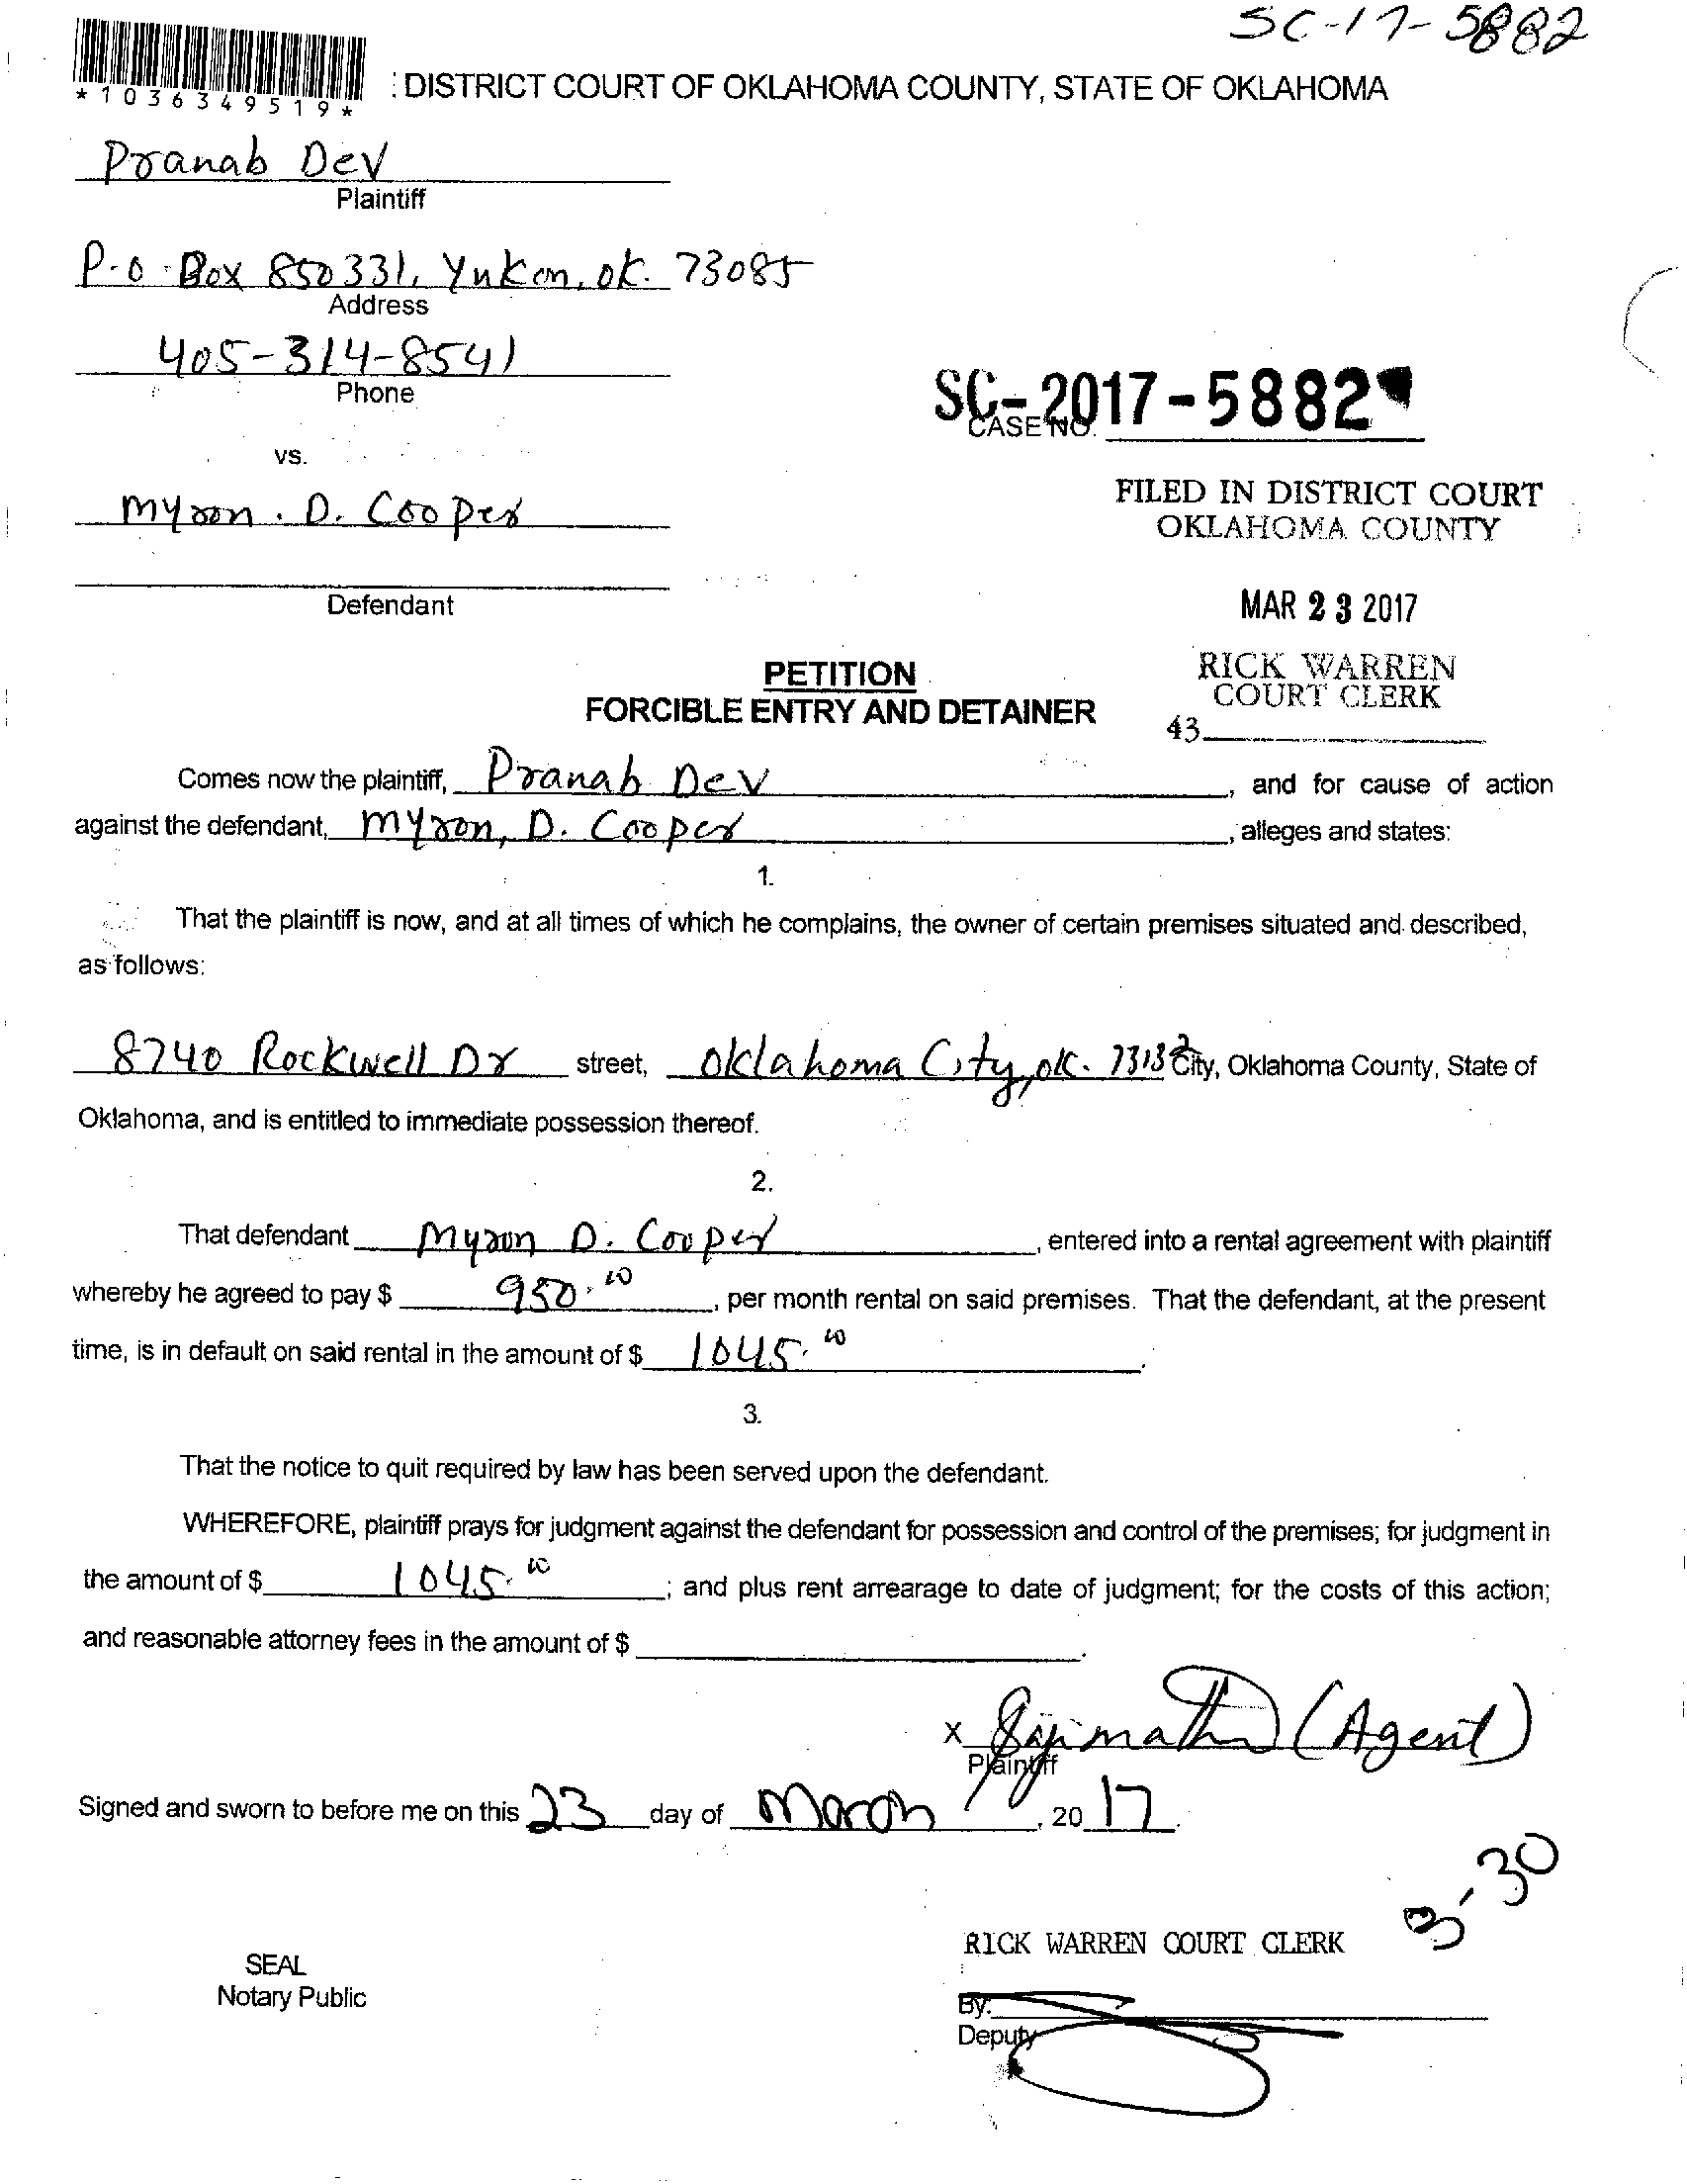 SC-17-5882
*1036349519*
: DISTRICT COURT OF OKLAHOMA COUNTY, STATE OF OKLAHOMA
Pranab Dev
Plaintiff
P.O. Box 850331, Yukon, OK. 73085
Address
405-314-8541
Phone
SC-2017-5882
CASE NO.
vs.
Myron. D. Cooper
FILED IN DISTRICT COURT
OKLAHOMA COUNTY
Defendant
MAR 23 2017
PETITION
FORCIBLE ENTRY AND DETAINER
RICK WARREN
COURT CLERK
43
Comes now the plaintiff, Pranab Dev, and for cause of action
against the defendant, Myron, D. Cooper, alleges and states:
1.
That the plaintiff is now, and at all times of which he complains, the owner of certain premises situated and described,
as follows:
8740 Rockwell Dr street, Oklahoma City, OK. 73132 City, Oklahoma County, State of
Oklahoma, and is entitled to immediate possession thereof.
2.
That defendant Myron D. Cooper, entered into a rental agreement with plaintiff
whereby he agreed to pay $ 950.00, per month rental on said premises. That the defendant, at the present
time, is in default on said rental in the amount of $ 1045.00.
3.
That the notice to quit required by law has been served upon the defendant.
WHEREFORE, plaintiff prays for judgment against the defendant for possession and control of the premises; for judgment in
the amount of $ 1045.00; and plus rent arrearage to date of judgment; for the costs of this action;
and reasonable attorney fees in the amount of $ .
X (Agent)
Plaintiff
Signed and sworn to before me on this 23 day of March, 20 17.
3-30
RICK WARREN COURT CLERK
SEAL
Notary Public
By:
Deputy